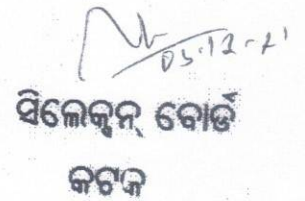 03-12-21
ସିଲେକ୍ସନ୍ ବୋର୍ଡ
କଟକ